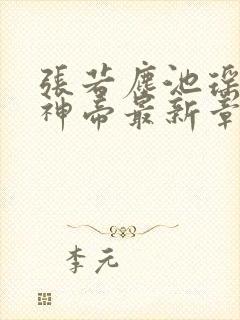 張若塵池瑤
神帝最新章
李元